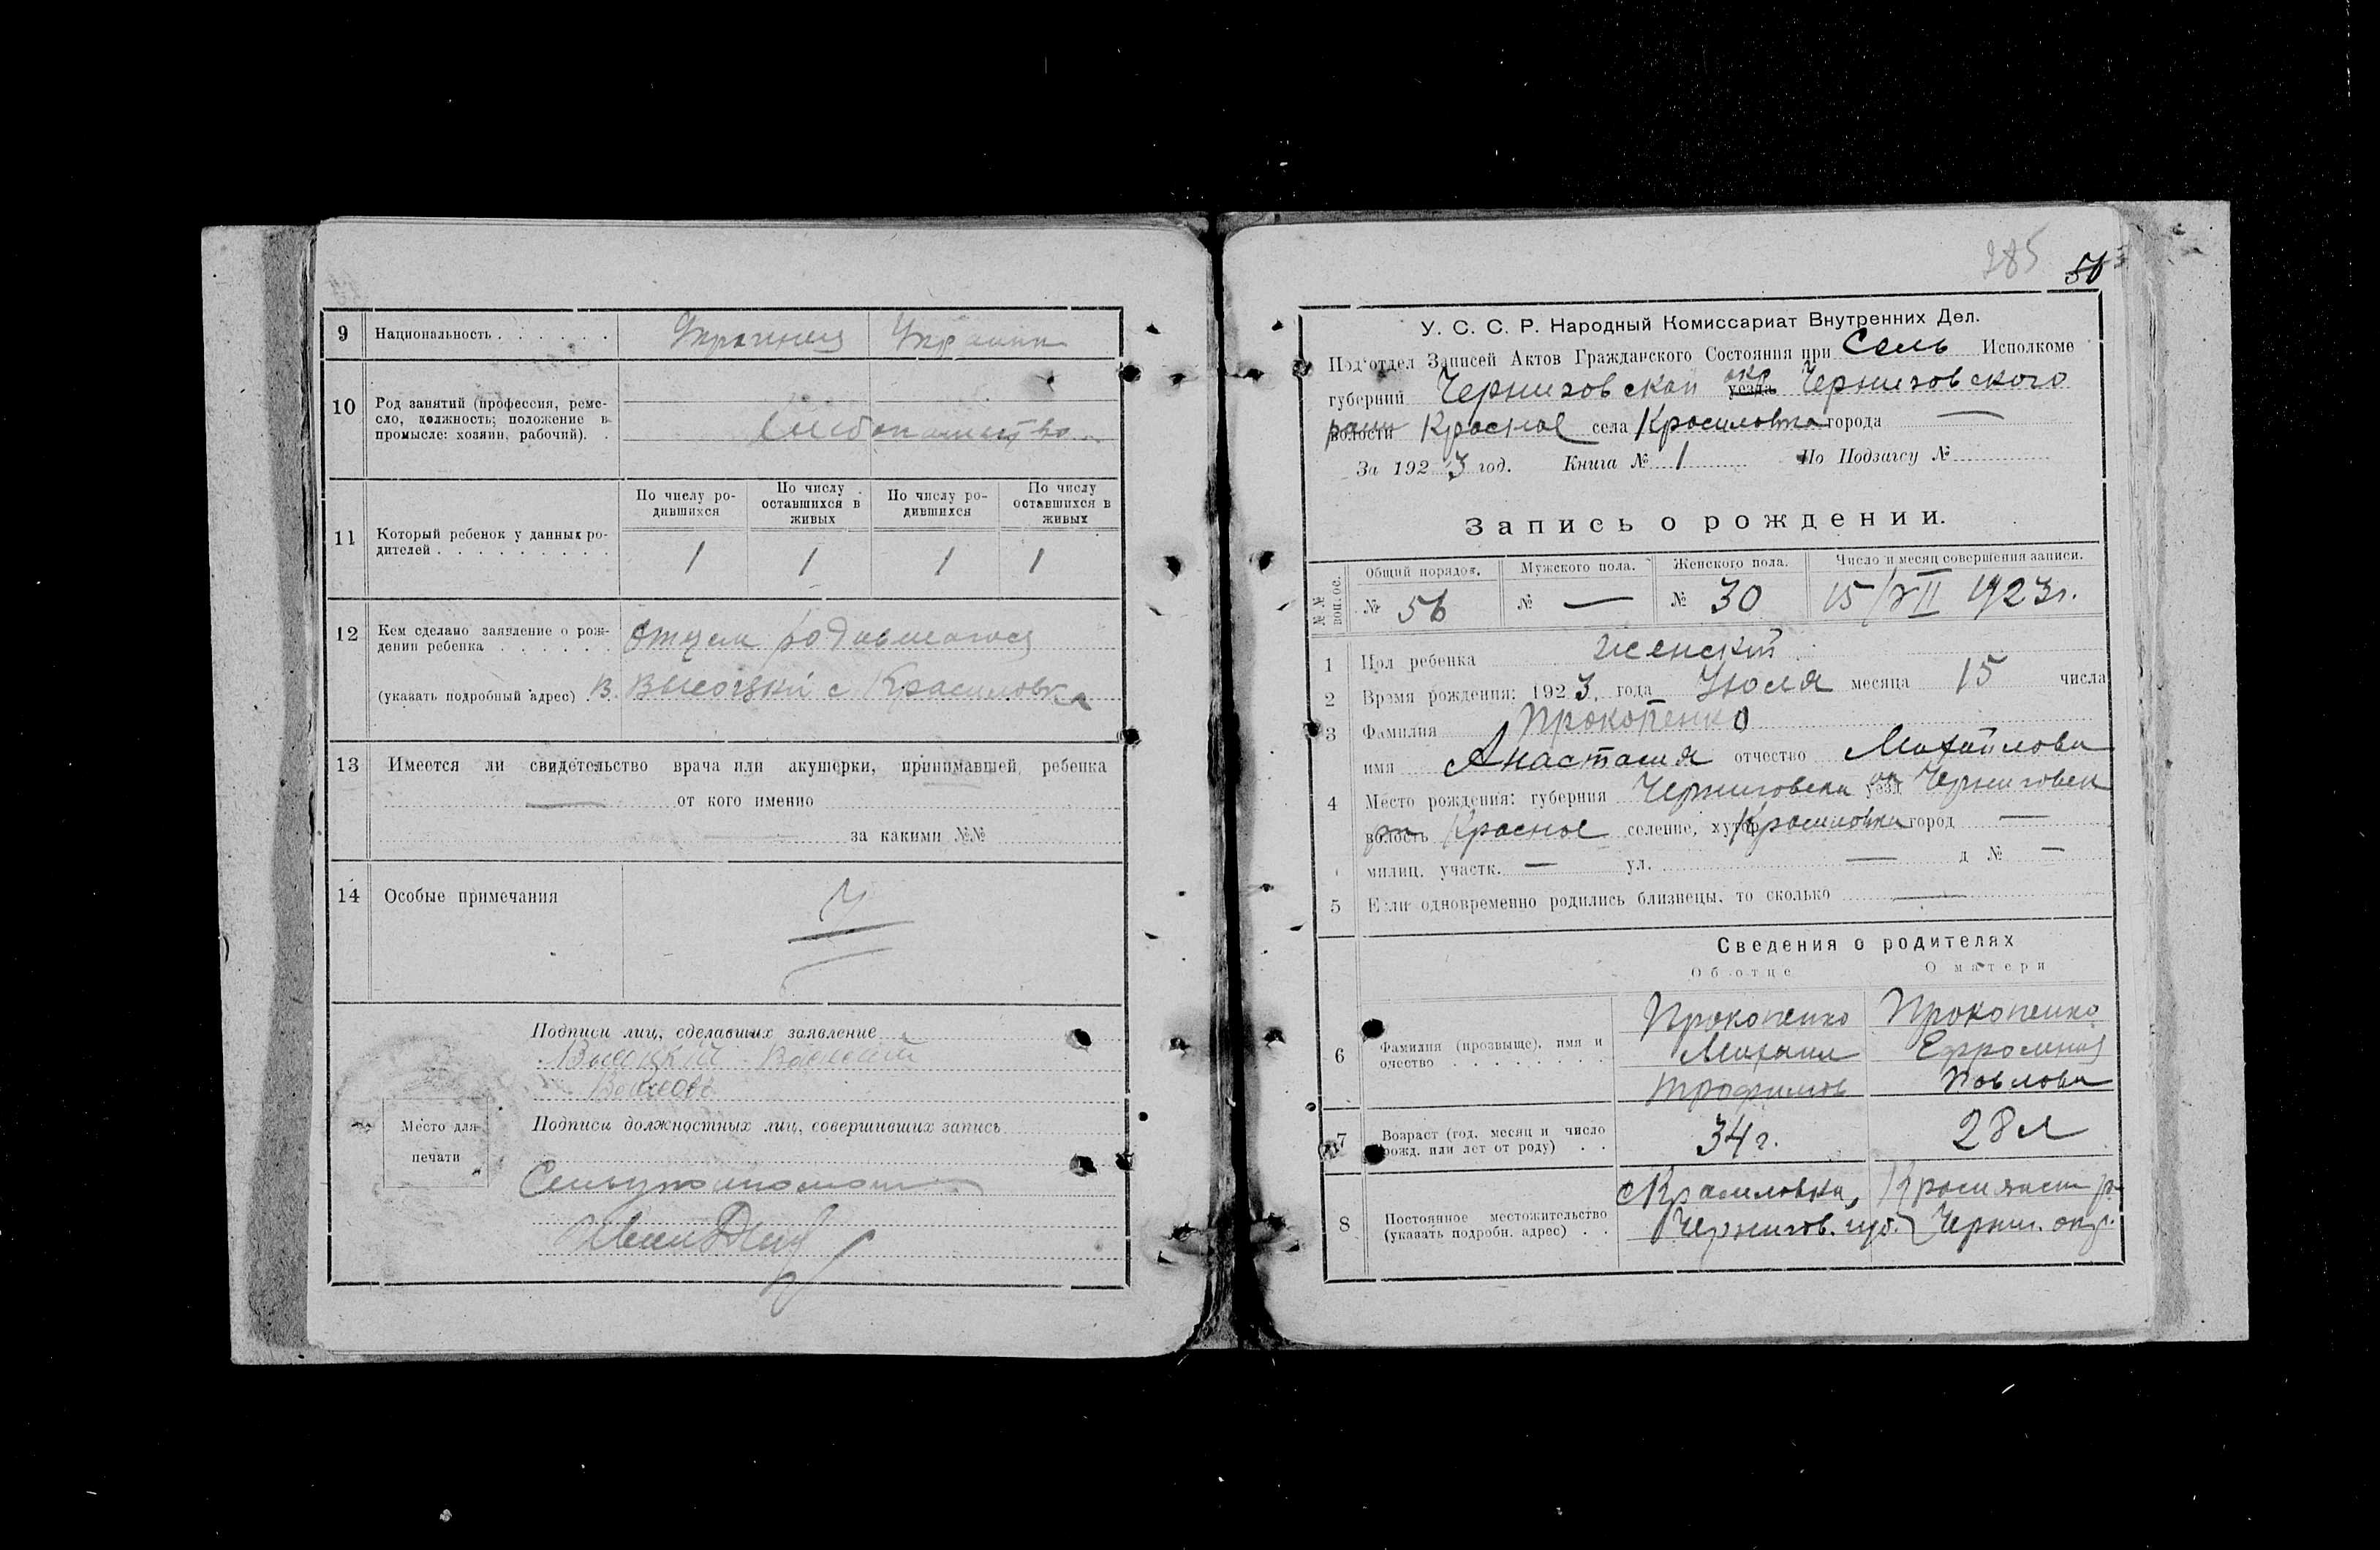 9 Национальность . . . . . . Украинец Украин
10 Род занятий (профессия, реме-
сло, должность; положение в
промысле: хозяин, рабочий). .
Хлебопашество
По числу ро-
дившихся
По числу
оставшихся в
живых
По числу ро-
дившихся
По числу
оставшихся в
живых
11 Который ребенок у данных ро-
дителей . . . . . . . . .
1 1 1 1
12 Кем сделано заявление о рож-
дении ребенка . . . . . . Отцем родившагося
(указать подробный адрес) . В. Высоцкий с Красиловка
13 Имеется ли свидетельство врача или акушерки, принимавшей ребенка
— от кого именно
за какими №№
14 Особые примечания
Подписи лиц, сделавших заявление
Высоцкий Василий
Место для
печати
Подписи должностных лиц, совершивших запись
285 50
У. С. С. Р. Народный Комиссариат Внутренних Дел.
Под'отдел Записей Актов Гражданского Состояния при Сель Исполкоме
губернии Черниговской уезда окр Черниговского
волости Красное села Красиловка города —
За 1923 год. Книга № 1 По Подзагсу №
Запись о рождении.
№№ Общий порядок. Мужского пола. Женского пола. Число и месяц совершения записи.
№ 56 № — № 30 15/VII 1923г.
1 Пол ребенка женский
2 Время рождения: 1923 года Июля месяца 15 числа
3 Фамилия Прокопенко
имя Анастасия отчество Михайлова
4 Место рождения: губерния Черниговская уезд ок Черниговск
волость Красное селение, хутор Красиловка город —
милиц. участк. — ул. — д № —
5 Если одновременно родились близнецы, то сколько —
Сведения о родителях
Об отце О матери
6 Фамилия (прозвище), имя и
очество . . . . . . .
Прокопенко
Михаил
Трофимов
Прокопенко
Ефросиния
Павлова
7 Возраст (год, месяц и число
рожд. или лет от роду) . .
34 г. 28 л
8 Постоянное местожительство
(указать подробн. адрес) . .
с Красиловка,
Чернигов. губ. Черниг. окр.